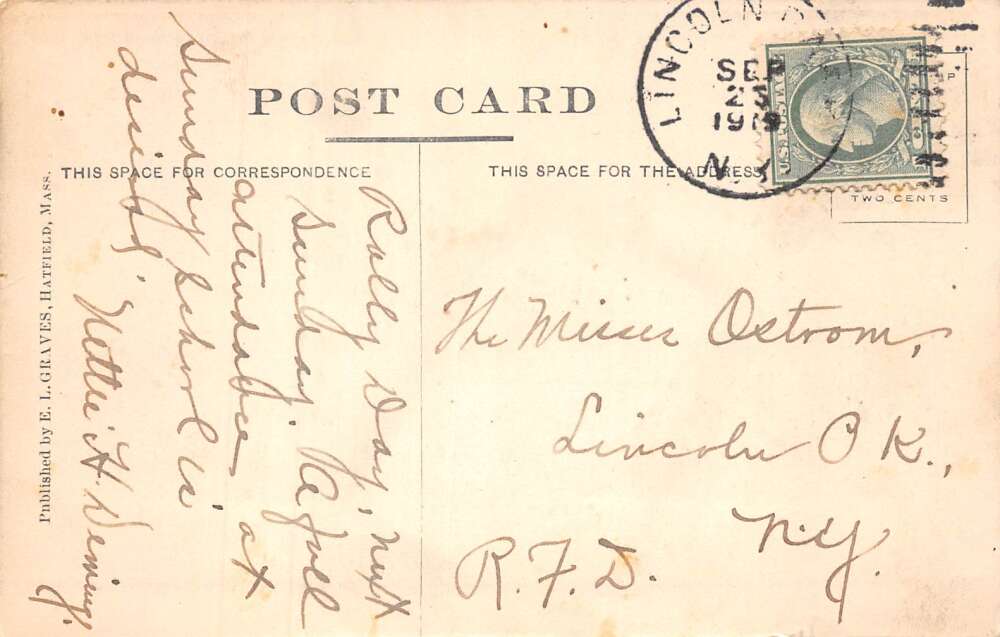 POST CARD
THIS SPACE FOR CORRESPONDENCE
THIS SPACE FOR THE ADDRESS
TWO CENTS
LINCOLN
SEP
23
N.Y.
Published by E. L. GRAVES, HATFIELD, MASS.
Rally Day, next
Sunday. A full
attendance at
Sunday School is
desired.
Nettie H. Deming.
The Misses Ostrom,
Lincoln P K.,
N.Y.
R.F.D.